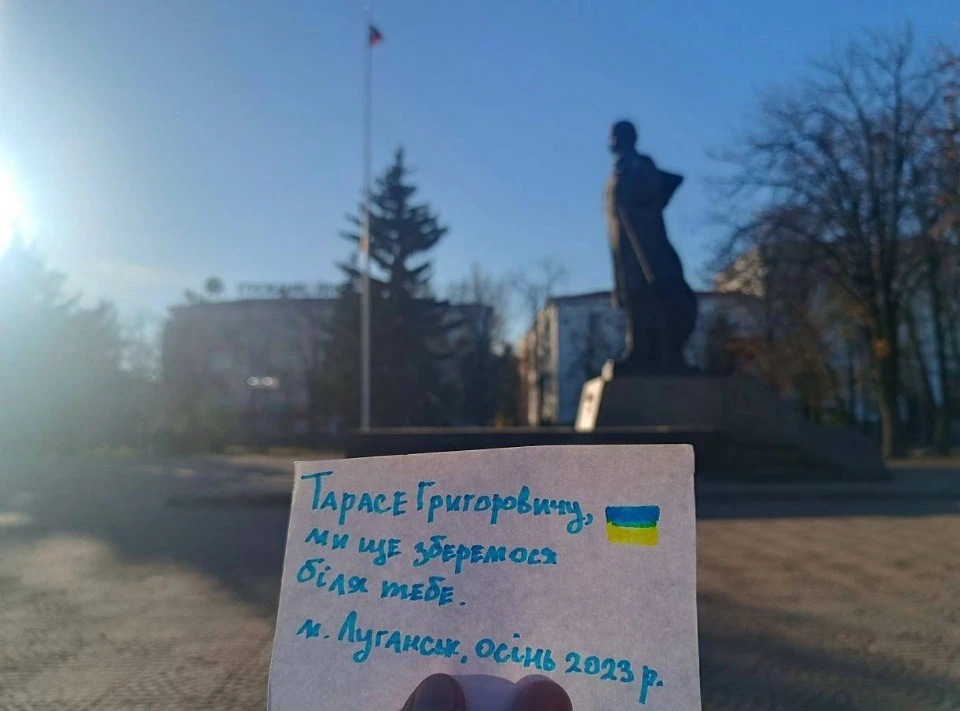 Тарасе Григоровичу,
ми ще зберемося
біля тебе.
м. Луганськ, осінь 2023 р.